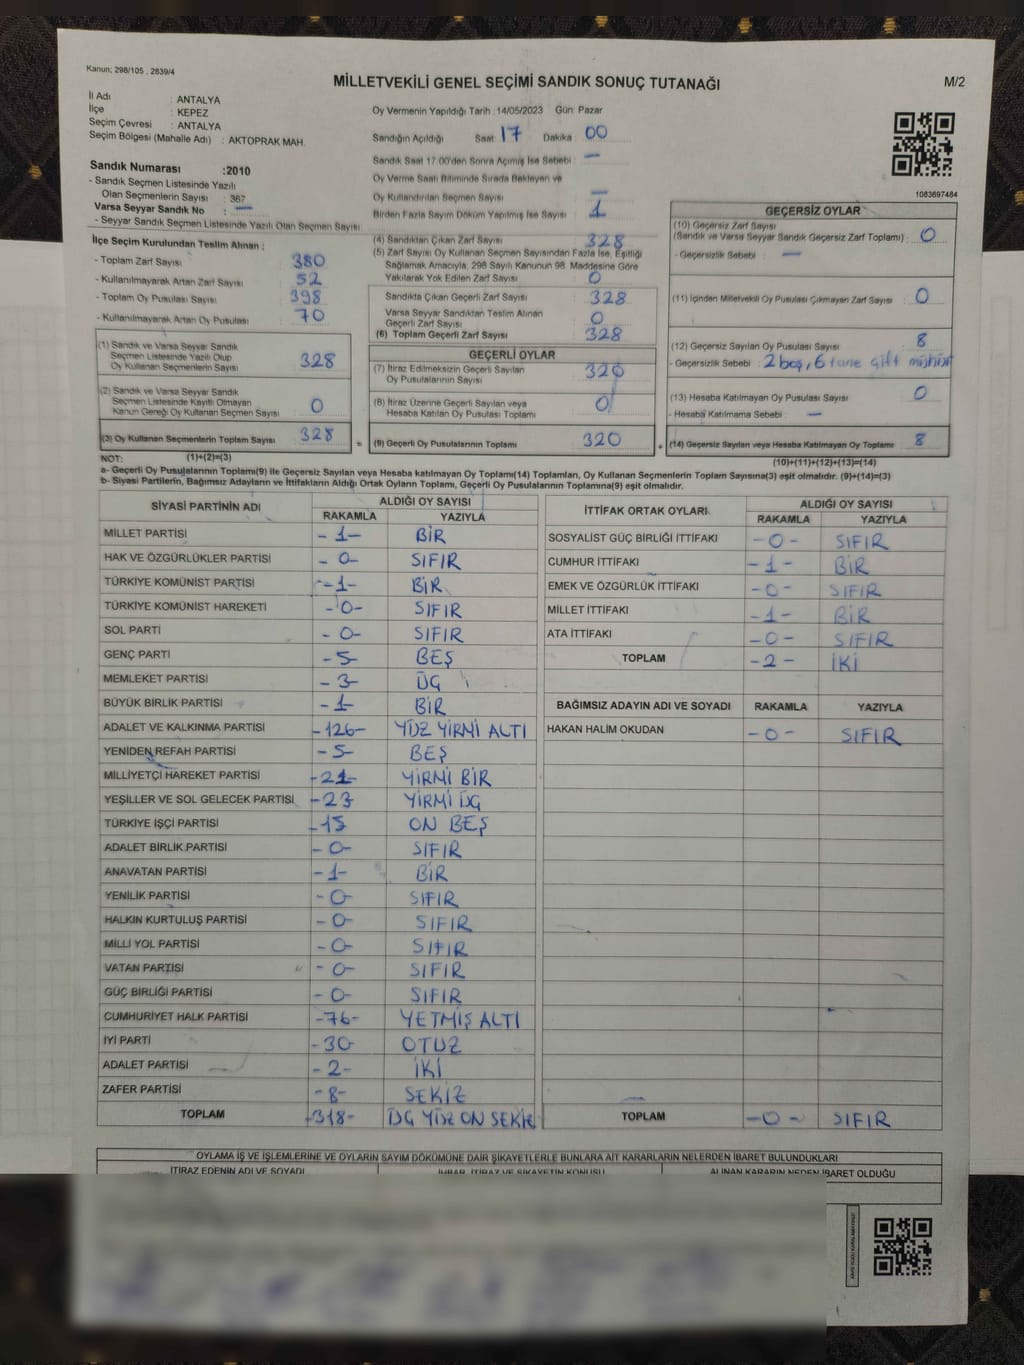 Kanun; 298/105 , 2839/4
MİLLETVEKİLİ GENEL SEÇİMİ SANDIK SONUÇ TUTANAĞI
M/2
İl Adı : ANTALYA
İlçe : KEPEZ
Seçim Çevresi : ANTALYA
Seçim Bölgesi (Mahalle Adı) : AKTOPRAK MAH.
Oy Vermenin Yapıldığı Tarih :14/05/2023 Gün: Pazar
Sandığın Açıldığı Saat 17 Dakika : 00
Sandık Saat 17.00'den Sonra Açılmış İse Sebebi : —
Oy Verme Saati Bitiminde Sırada Bekleyen ve
Oy Kullandırılan Seçmen Sayısı : —
Birden Fazla Sayım Döküm Yapılmış İse Sayısı : 1
1083697484
Sandık Numarası :2010
- Sandık Seçmen Listesinde Yazılı
Olan Seçmenlerin Sayısı : 367
Varsa Seyyar Sandık No : —
- Seyyar Sandık Seçmen Listesinde Yazılı Olan Seçmen Sayısı
İlçe Seçim Kurulundan Teslim Alınan :
- Toplam Zarf Sayısı : 380
- Kullanılmayarak Artan Zarf Sayısı : 52
- Toplam Oy Pusulası Sayısı : 398
- Kullanılmayarak Artan Oy Pusulası : 70
(1) Sandık ve Varsa Seyyar Sandık
Seçmen Listesinde Yazılı Olup
Oy Kullanan Seçmenlerin Sayısı : 328
(2) Sandık ve Varsa Seyyar Sandık
Seçmen Listesinde Kayıtlı Olmayan
Kanun Gereği Oy Kullanan Seçmen Sayısı : 0
(3) Oy Kullanan Seçmenlerin Toplam Sayısı : 328
(1)+(2)=(3)
(4) Sandıktan Çıkan Zarf Sayısı : 328
(5) Zarf Sayısı Oy Kullanan Seçmen Sayısından Fazla İse, Eşitliği
Sağlamak Amacıyla, 298 Sayılı Kanunun 98. Maddesine Göre
Yakılarak Yok Edilen Zarf Sayısı : 0
Sandıkta Çıkan Geçerli Zarf Sayısı : 328
Varsa Seyyar Sandıktan Teslim Alınan
Geçerli Zarf Sayısı : 0
(6) Toplam Geçerli Zarf Sayısı : 328
GEÇERLİ OYLAR
(7) İtiraz Edilmeksizin Geçerli Sayılan
Oy Pusulalarının Sayısı : 320
(8) İtiraz Üzerine Geçerli Sayılan veya
Hesaba Katılan Oy Pusulası Toplamı : 0
= (9) Geçerli Oy Pusulalarının Toplamı : 320 +
GEÇERSİZ OYLAR
(10) Geçersiz Zarf Sayısı
(Sandık ve Varsa Seyyar Sandık Geçersiz Zarf Toplamı) : 0
- Geçersizlik Sebebi : —
(11) İçinden Milletvekili Oy Pusulası Çıkmayan Zarf Sayısı : 0
(12) Geçersiz Sayılan Oy Pusulası Sayısı : 8
- Geçersizlik Sebebi : 2 boş, 6 tane çift
(13) Hesaba Katılmayan Oy Pusulası Sayısı : 0
- Hesaba Katılmama Sebebi : —
(14) Geçersiz Sayılan veya Hesaba Katılmayan Oy Toplamı : 8
(10)+(11)+(12)+(13)=(14)
NOT:
a- Geçerli Oy Pusulalarının Toplamı(9) ile Geçersiz Sayılan veya Hesaba katılmayan Oy Toplamı(14) Toplamları, Oy Kullanan Seçmenlerin Toplam Sayısına(3) eşit olmalıdır. (9)+(14)=(3)
b- Siyasi Partilerin, Bağımsız Adayların ve İttifakların Aldığı Ortak Oyların Toplamı, Geçerli Oy Pusulalarının Toplamına(9) eşit olmalıdır.
SİYASİ PARTİNİN ADI ALDIĞI OY SAYISI
RAKAMLA YAZIYLA
MİLLET PARTİSİ -1- BİR
HAK VE ÖZGÜRLÜKLER PARTİSİ -0- SIFIR
TÜRKİYE KOMÜNİST PARTİSİ -1- BİR
TÜRKİYE KOMÜNİST HAREKETİ -0- SIFIR
SOL PARTİ -0- SIFIR
GENÇ PARTİ -5- BEŞ
MEMLEKET PARTİSİ -3- ÜÇ
BÜYÜK BİRLİK PARTİSİ -1- BİR
ADALET VE KALKINMA PARTİSİ -126- YÜZ YİRMİ ALTI
YENİDEN REFAH PARTİSİ -5- BEŞ
MİLLİYETÇİ HAREKET PARTİSİ -21- YİRMİ BİR
YEŞİLLER VE SOL GELECEK PARTİSİ -23 YİRMİ ÜÇ
TÜRKİYE İŞÇİ PARTİSİ -15 ON BEŞ
ADALET BİRLİK PARTİSİ -0- SIFIR
ANAVATAN PARTİSİ -1- BİR
YENİLİK PARTİSİ -0- SIFIR
HALKIN KURTULUŞ PARTİSİ -0- SIFIR
MİLLİ YOL PARTİSİ -0- SIFIR
VATAN PARTİSİ -0- SIFIR
GÜÇ BİRLİĞİ PARTİSİ -0- SIFIR
CUMHURİYET HALK PARTİSİ -76- YETMİŞ ALTI
İYİ PARTİ -30- OTUZ
ADALET PARTİSİ -2- İKİ
ZAFER PARTİSİ -8- SEKİZ
TOPLAM -318- ÜÇ YÜZ ON SEKİZ
İTTİFAK ORTAK OYLARI ALDIĞI OY SAYISI
RAKAMLA YAZIYLA
SOSYALİST GÜÇ BİRLİĞİ İTTİFAKI -0- SIFIR
CUMHUR İTTİFAKI -1- BİR
EMEK VE ÖZGÜRLÜK İTTİFAKI -0- SIFIR
MİLLET İTTİFAKI -1- BİR
ATA İTTİFAKI -0- SIFIR
TOPLAM -2- İKİ
BAĞIMSIZ ADAYIN ADI VE SOYADI RAKAMLA YAZIYLA
HAKAN HALİM OKUDAN -0- SIFIR
TOPLAM -0- SIFIR
OYLAMA İŞ VE İŞLEMLERİNE VE OYLARIN SAYIM DÖKÜMÜNE DAİR ŞİKAYETLERLE BUNLARA AİT KARARLARIN NELERDEN İBARET BULUNDUKLARI
İTİRAZ EDENİN ADI VE SOYADI İHBAR, İTİRAZ VE ŞİKAYETİN KONUSU ALINAN KARARIN NEDEN İBARET OLDUĞU